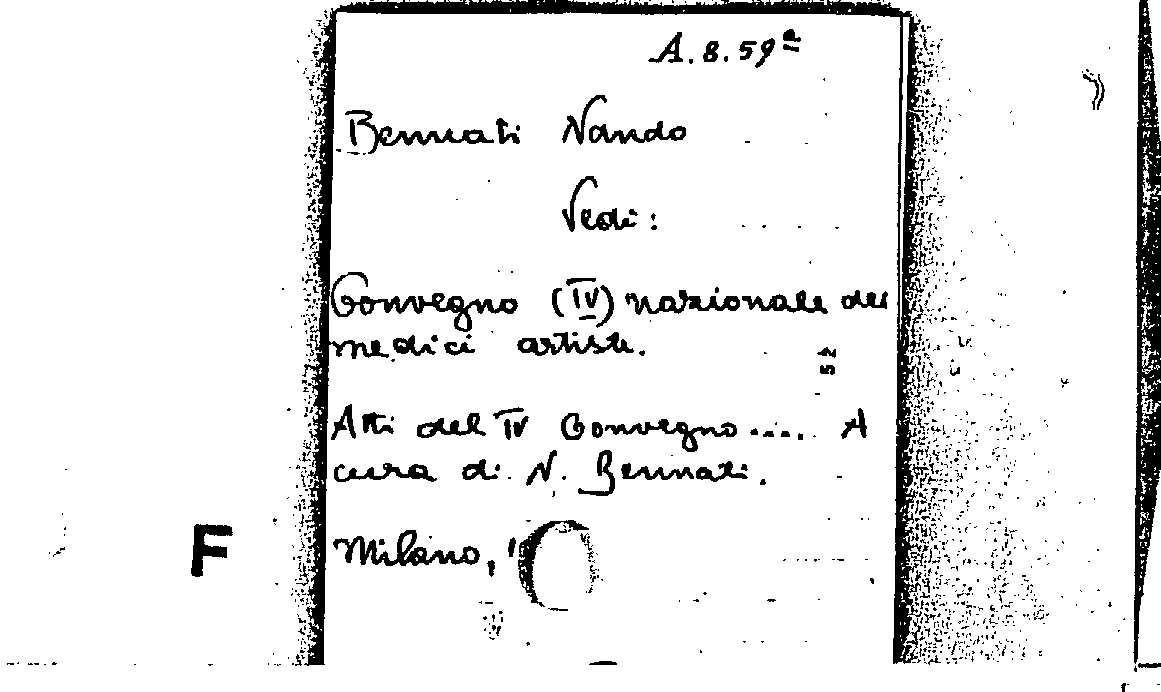 A.8.59ª
Bennati Nando
Vedi:
Convegno (IV) nazionale dei
medici artisti.
52
Atti del IV Convegno.... A
cura di N. Bennati.
F
Milano,